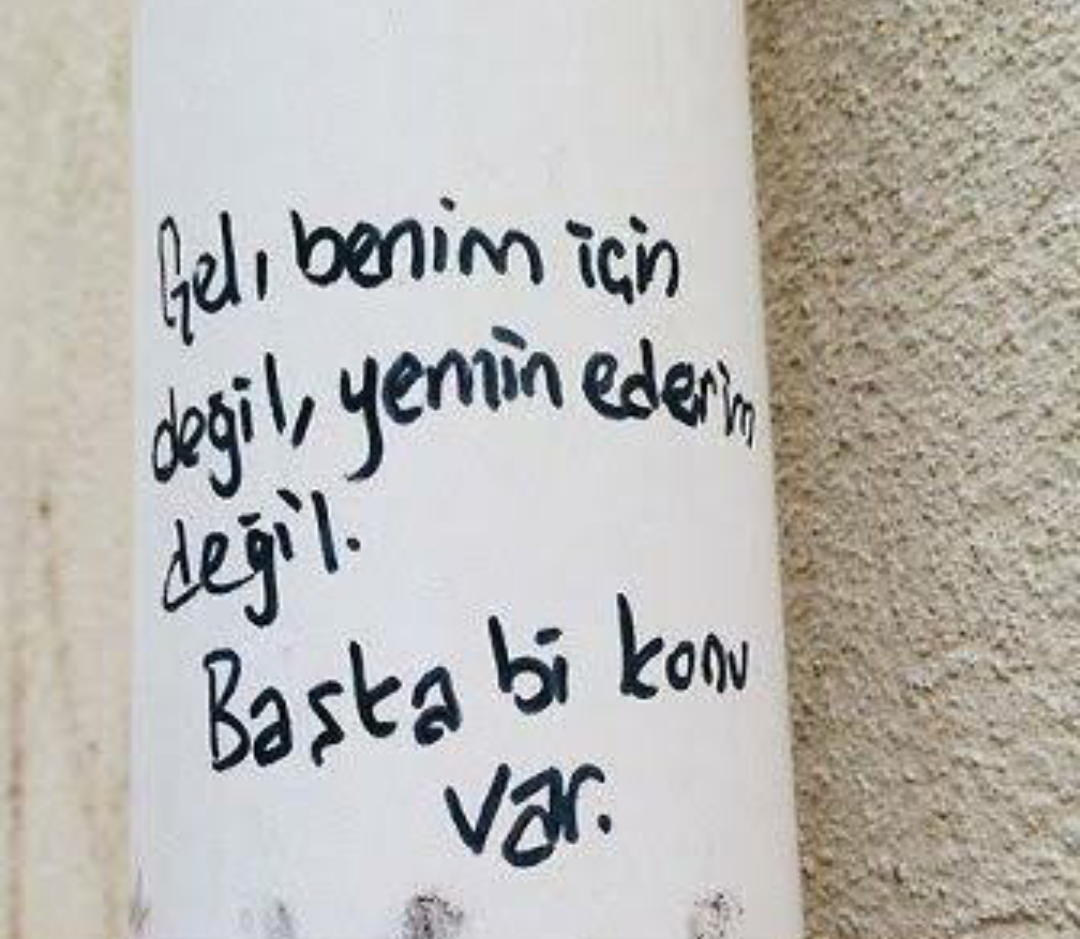 Gel, benim için
değil, yemin ederim
değil.
Başka bi konu
var.